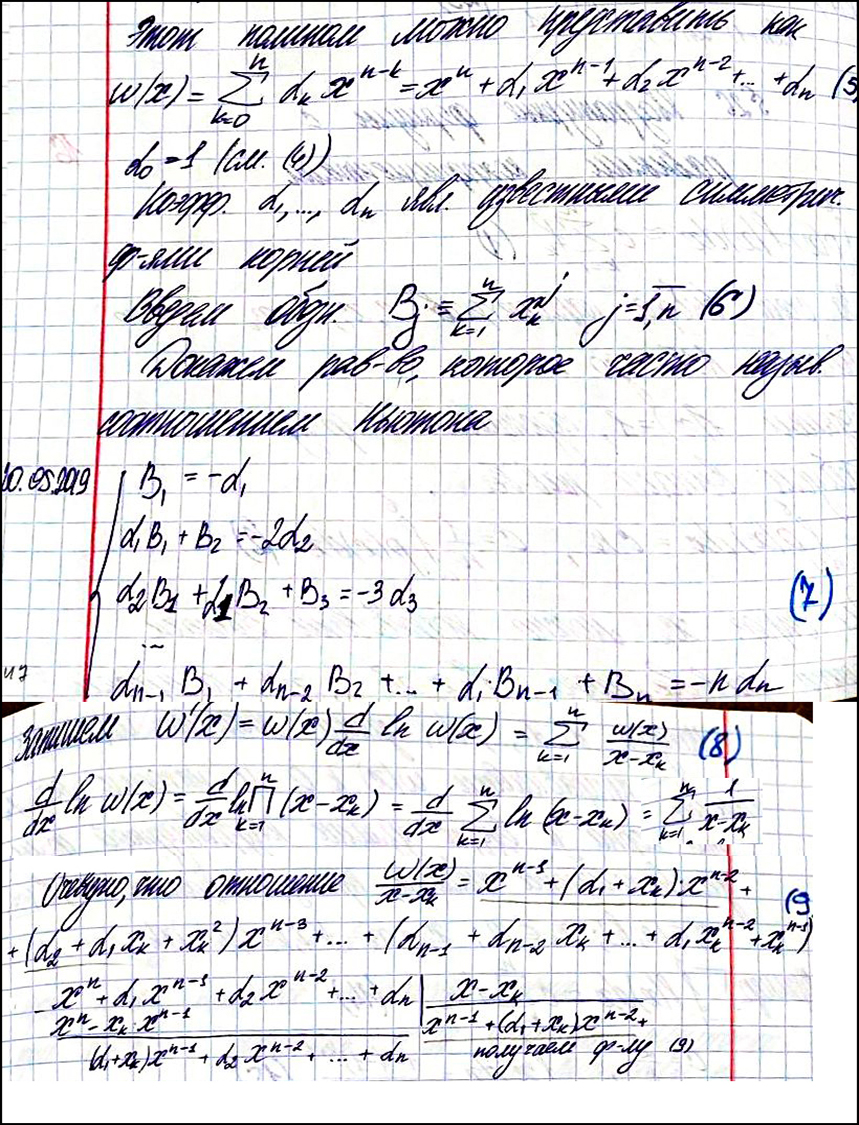 Этот полином можно представить как
ω(x) = ∑_{k=0}^{n} α_k x^{n-k} = x^n + α_1 x^{n-1} + α_2 x^{n-2} + ... + α_n (5
α_0 = 1 (см. (4))
Коэфф. α_1, ..., α_n явл. известными симметрич.
ф-ями корней
Введем обозн. B_j = ∑_{k=1}^{n} x_k^j j = 1,n (6)
Докажем рав-во, которое часто назыв.
соотношением Ньютона
10.05.2019 B_1 = -α_1
α_1 B_1 + B_2 = -2α_2
α_2 B_1 + α_1 B_2 + B_3 = -3α_3 (7)
...
α_{n-1} B_1 + α_{n-2} B_2 + ... + α_1 B_{n-1} + B_n = -n α_n
Запишем ω'(x) = ω(x) d/dx ln ω(x) = ∑_{k=1}^{n} ω(x)/(x-x_k) (8)
d/dx ln ω(x) = d/dx ln ∏_{k=1}^{n} (x-x_k) = d/dx ∑_{k=1}^{n} ln (x-x_k) = ∑_{k=1}^{n} 1/(x-x_k)
Очевидно, что отношение ω(x)/(x-x_k) = x^{n-1} + (α_1 + x_k) x^{n-2} + (9
+ (α_2 + α_1 x_k + x_k^2) x^{n-3} + ... + (α_{n-1} + α_{n-2} x_k + ... + α_1 x_k^{n-2} + x_k^{n-1})
- x^n + α_1 x^{n-1} + α_2 x^{n-2} + ... + α_n | x - x_k
x^n - x_k x^{n-1} | x^{n-1} + (α_1 + x_k) x^{n-2} +
(α_1 + x_k) x^{n-1} + α_2 x^{n-2} + ... + α_n получаем ф-лу (9)